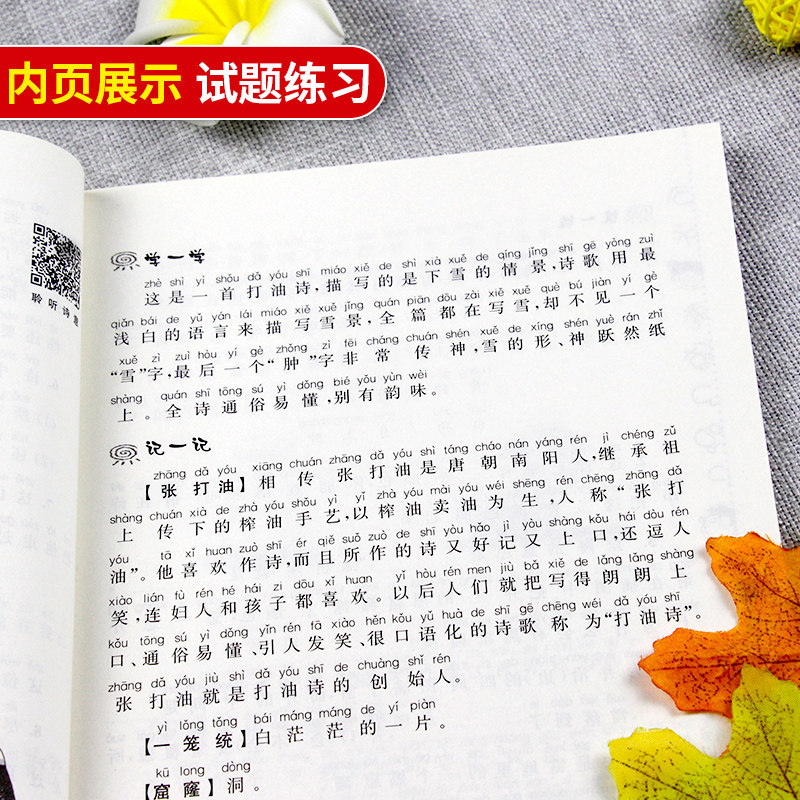 内页展示 试题练习
聆听诗意
学一学
zhè shì yì shǒu dǎ yóu shī miáo xiě de shì xià xuě de qíng jǐng shī gē yòng zuì
这是一首打油诗，描写的是下雪的情景，诗歌用最
qiǎn bái de yǔ yán lái miáo xiě xuě jǐng quán piān dōu zài xiě xuě què bú jiàn yí gè
浅白的语言来描写雪景，全篇都在写雪，却不见一个
xuě zì zuì hòu yí gè zhǒng zì fēi cháng chuán shén xuě de xíng shén yuè rán zhǐ
“雪”字，最后一个“肿”字非常传神，雪的形、神跃然纸
shàng quán shī tōng sú yì dǒng bié yǒu yùn wèi
上。全诗通俗易懂，别有韵味。
记一记
zhāng dǎ yóu xiāng chuán zhāng dǎ yóu shì táng cháo nán yáng rén jì chéng zǔ
【张打油】相传张打油是唐朝南阳人，继承祖
shàng chuán xià de zhà yóu shǒu yì yǐ zhà yóu mài yóu wéi shēng rén chēng zhāng dǎ
上传下的榨油手艺，以榨油卖油为生，人称“张打
yóu tā xǐ huan zuò shī ér qiě suǒ zuò de shī yòu hǎo jì yòu shàng kǒu hái dòu rén
油”。他喜欢作诗，而且所作的诗又好记又上口，还逗人
xiào lián fù rén hé hái zi dōu xǐ huan yǐ hòu rén men jiù bǎ xiě de lǎng lǎng shàng
笑，连妇人和孩子都喜欢。以后人们就把写得朗朗上
kǒu tōng sú yì dǒng yǐn rén fā xiào hěn kǒu yǔ huà de shī gē chēng wéi dǎ yóu shī
口、通俗易懂、引人发笑、很口语化的诗歌称为“打油诗”。
zhāng dǎ yóu jiù shì dǎ yóu shī de chuàng shǐ rén
张打油就是打油诗的创始人。
yì lǒng tǒng bái máng máng de yí piàn
【一笼统】白茫茫的一片。
kū long dòng
【窟窿】洞。